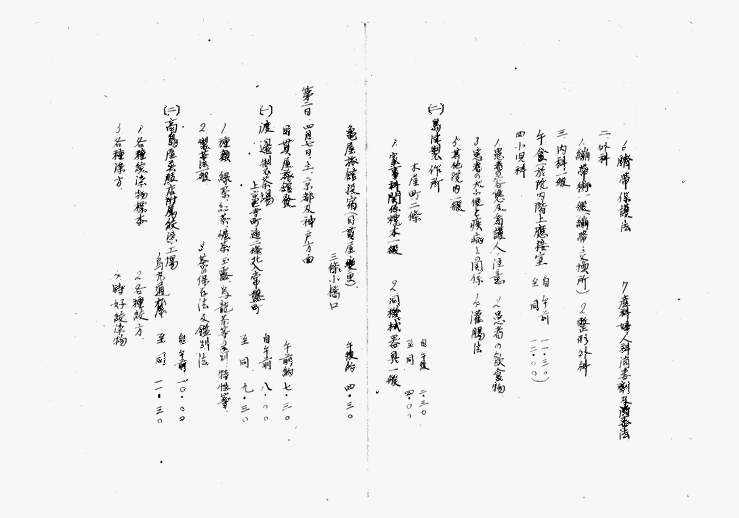 6 臍帯保護法　7 産科婦人科消毒剤及消毒法
二 外科
1. 繃帯術一般(繃帯交換所)　2 整形外科
三 内科一般　自午前 一一・三〇
午食(於院内階上應接室　至同 一二・〇〇)
四 小児科
1. 患者ノ各應及看護人ノ注意　2 患者の飲食物
3 患者の大小便と疾病との関係　4 灌腸法
5 其他院内一般
(二) 島津製作所
木屋町二條　自午後 二・三〇
1. 家事科関係標本一般　2 同機械器具一般　至同 四・〇〇
亀屋旅館投宿(日貫屋変更)　午後約 四・三〇
三條小橋口
第二日、四月七日、土、京都及神戸方面
日貫屋旅館発　午前約 七・三〇
(一) 渡邊製茶場　自午前 八・〇〇
上京区寺町通二條北入常盤町　至同 九・三〇
1 種類 緑茶、紅茶、碾茶、玉露、烏龍茶等ノ区別 特性等
2 製茶法一般　3 茶ノ保存法及鑑別法
(二) 高島屋呉服店附属絞染工場　自午前 一〇・〇〇
烏丸通　至同 一一・三〇
1 各種絞染物標本　2 各種絞方
3 各種染方　4 時好絞染物